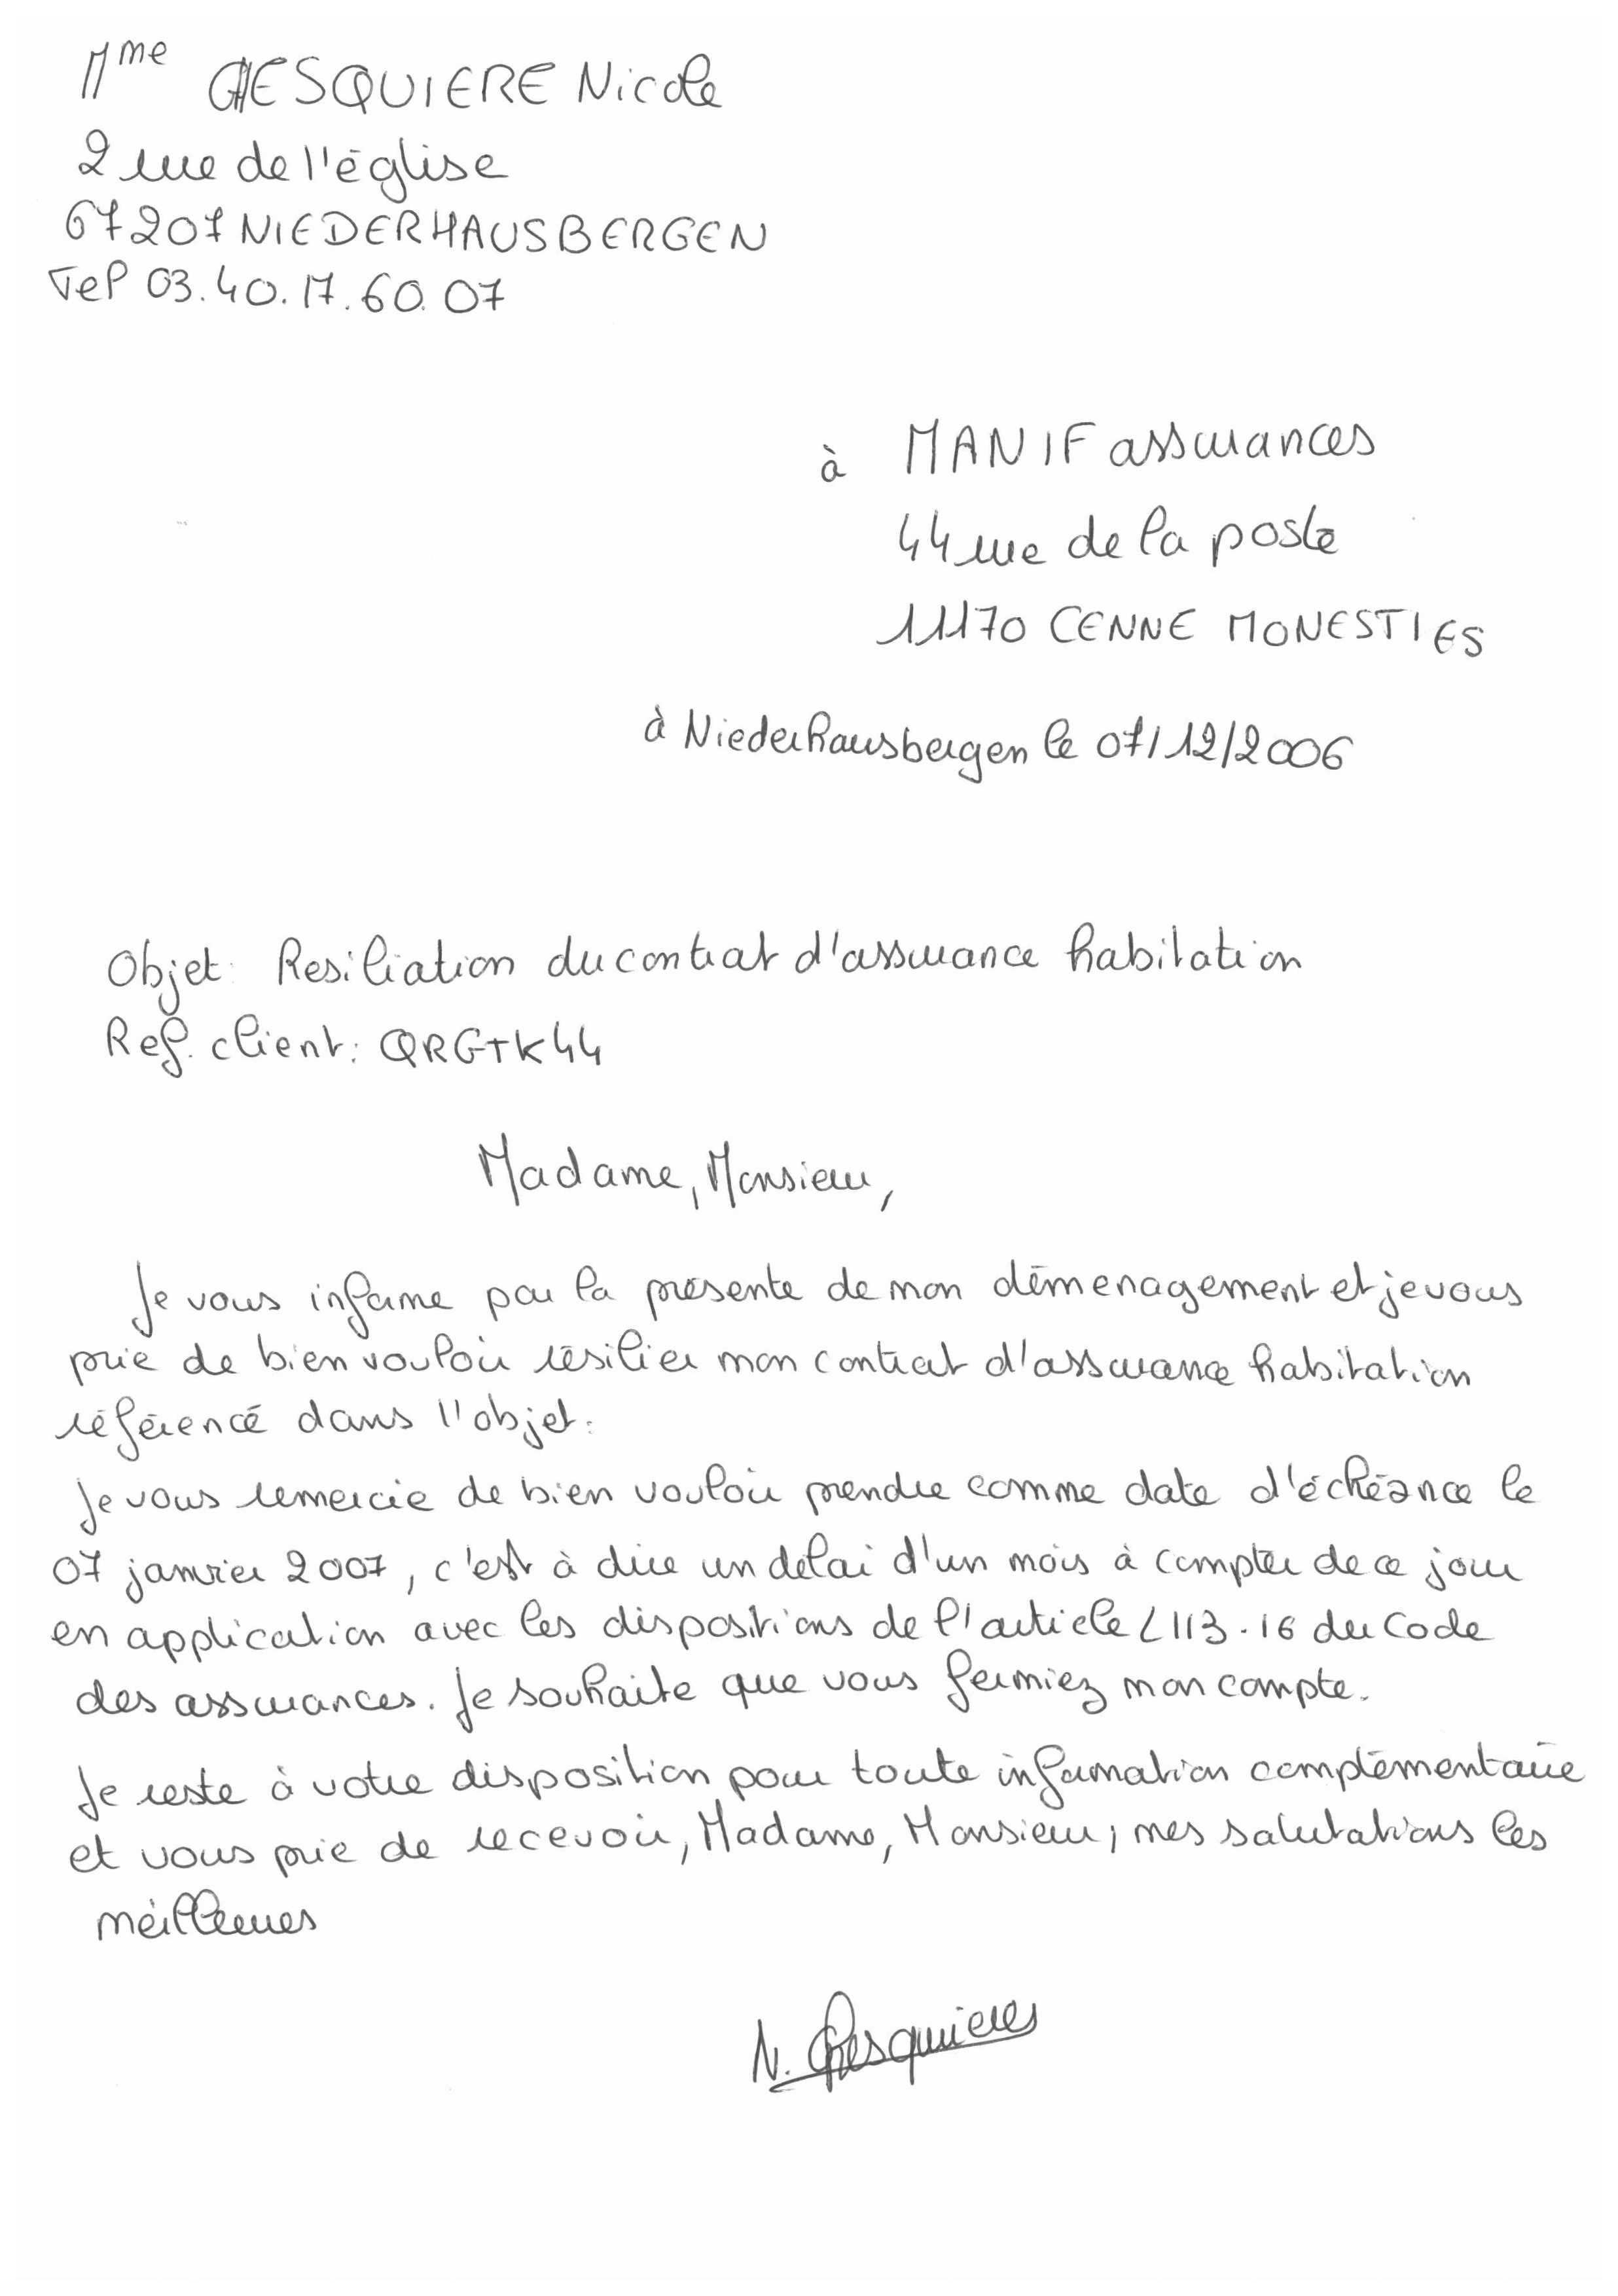 Mme GHESQUIERE Nicole
2 rue de l'église
67207 NIEDERHAUSBERGEN
Tel 03.40.17.60.07
à MANIF assurances
44 rue de la poste
11170 CENNE MONESTIES
à Niederhausbergen le 07/12/2006
Objet: Resiliation du contrat d'assurance habitation
Ref. client: QRGTK44
Madame, Monsieur,
Je vous informe par la présente de mon démenagement et je vous
prie de bien vouloir résilier mon contrat d'assurance habitation
référencé dans l'objet.
Je vous remercie de bien vouloir prendre comme date d'échéance le
07 janvier 2007, c'est à dire un délai d'un mois à compter de ce jour
en application avec les dispositions de l'article L113-16 du Code
des assurances. Je souhaite que vous fermiez mon compte.
Je reste à votre disposition pour toute information complémentaire
et vous prie de recevoir, Madame, Monsieur, mes salutations les
meilleures
N. Ghesquieres